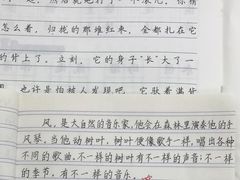 怎么着，归拢的那堆红枣，全都扎在它
的背上了。立刻，它的身子“长”大了一
也许是怕被人发现吧，它驮着满背
风，是大自然的音乐家，他会在森林里演奏他的手
风琴。当他动树叶，树叶便像歌手一样，唱出各种
不同的歌曲。不一样的树叶有不一样的声音；不一样
的季节，有不一样的音乐。